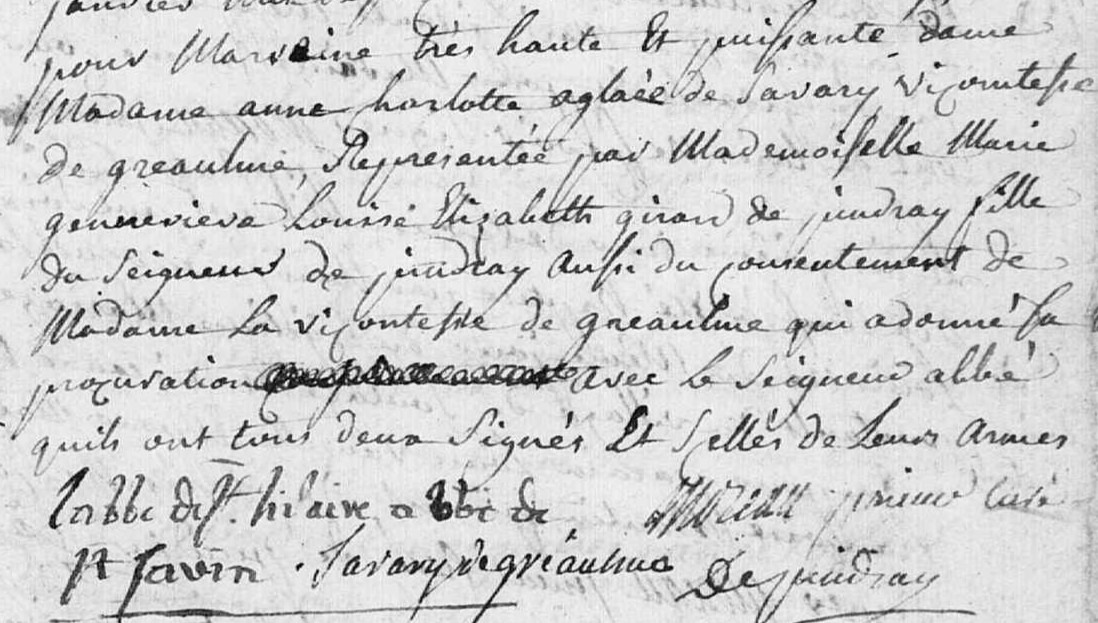 pour Marraine très haute Et puissante dame
Madame anne charlotte aglaëe de Savary vicomtesse
de greaulme, Representéé par Mademoiselle Marie
genevieve Louise Elizabeth girard de pindray fille
du Seigneur de pindray aussi du consentement de
Madame La vicontesse de greaulme qui a donné Sa
procuration avec le Seigneur abbé
quils ont tous deux Signés Et Sellés de Leurs Armes
Labbé de St. hilaire abbé de prieur Curé
St Savin . Savary de gréaulme De pindray